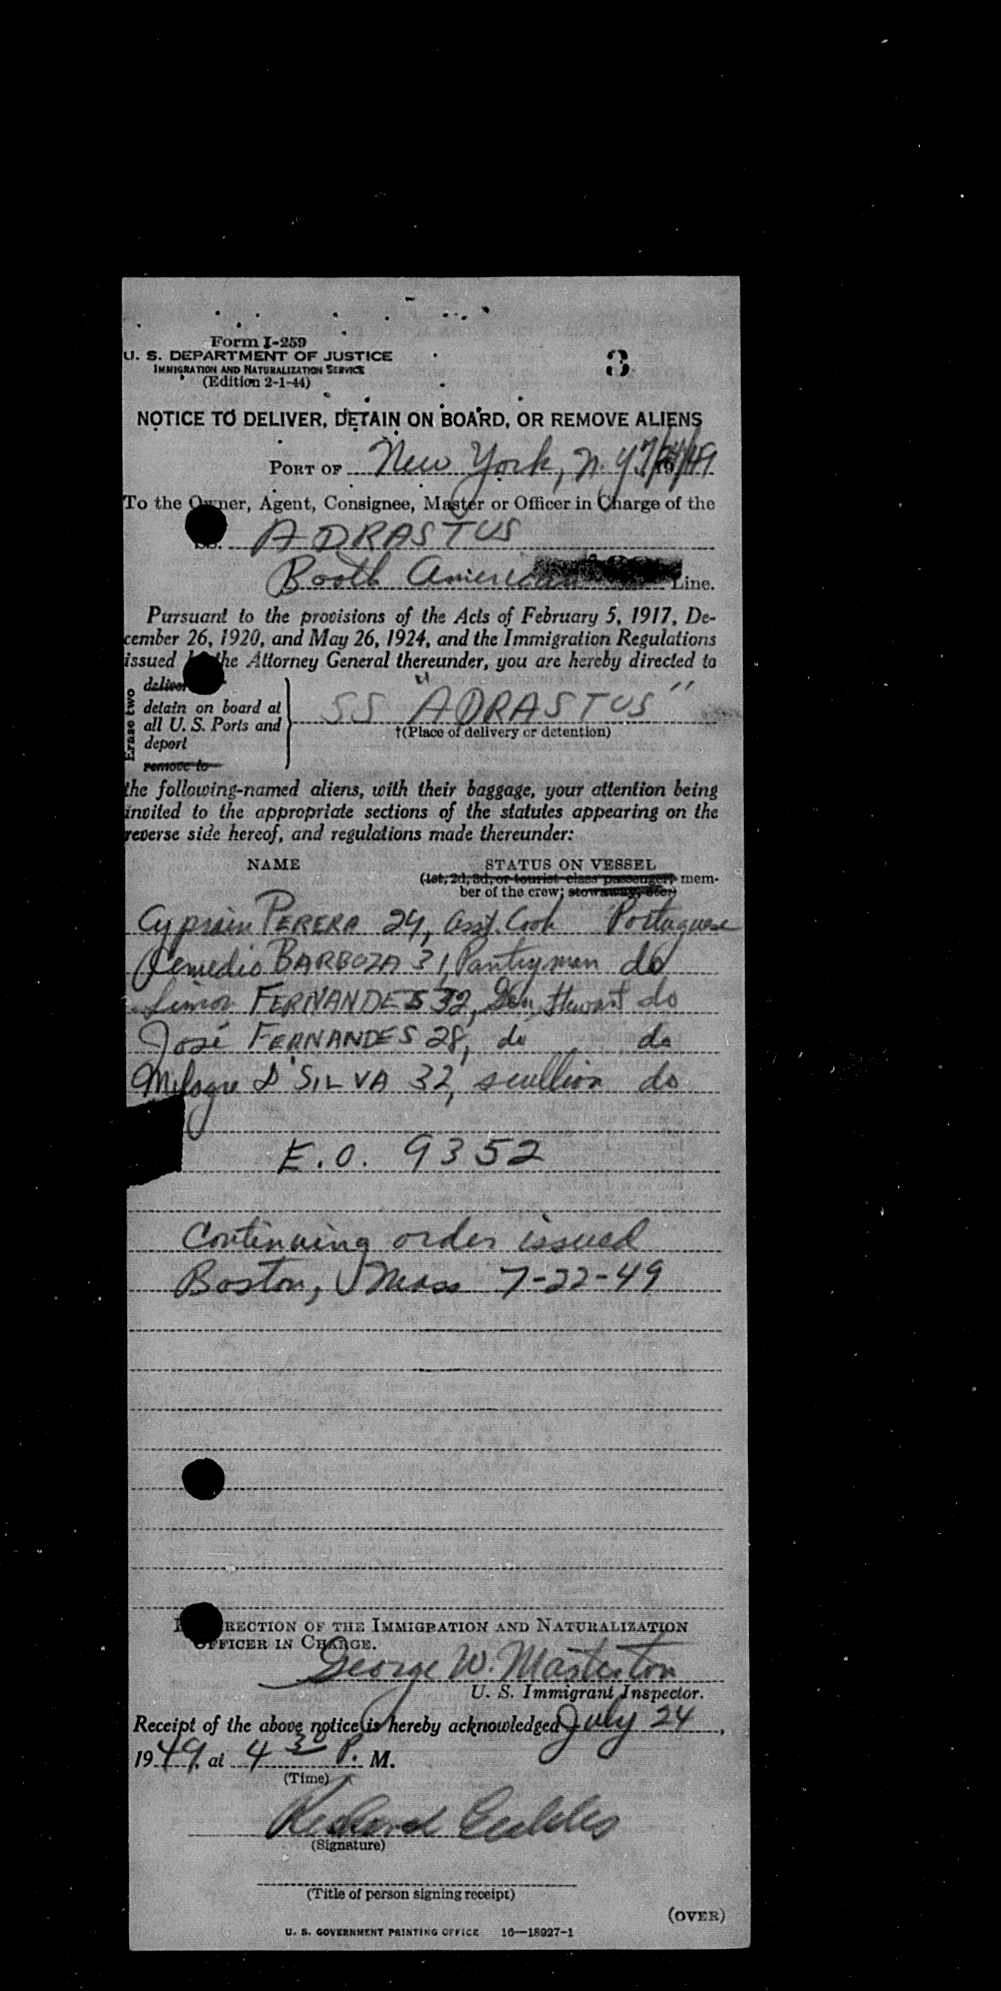 Form I-259
U. S. DEPARTMENT OF JUSTICE
IMMIGRATION AND NATURALIZATION SERVICE
(Edition 2-1-44)
3
NOTICE TO DELIVER, DETAIN ON BOARD, OR REMOVE ALIENS
PORT OF New York, N.Y. 7/24/49
To the Owner, Agent, Consignee, Master or Officer in Charge of the
SS. ADRASTUS
Booth American Line.
Pursuant to the provisions of the Acts of February 5, 1917, De-
cember 26, 1920, and May 26, 1924, and the Immigration Regulations
issued by the Attorney General thereunder, you are hereby directed to
Erase two
deliver
detain on board at
all U. S. Ports and
deport
remove to
SS "ADRASTUS"
†(Place of delivery or detention)
the following-named aliens, with their baggage, your attention being
invited to the appropriate sections of the statutes appearing on the
reverse side hereof, and regulations made thereunder:
NAME STATUS ON VESSEL
(1st, 2d, 3d, or tourist class passenger; mem-
ber of the crew; stowaway, etc.)
Cyprian PERERA 24, Asst. Cook Portuguese
Remedio BARBOZA 31, Pantryman do
FERNANDES 32, Gen. Stewart do
José FERNANDES 28, do do
Milagre D'SILVA 32, scullion do
E.O. 9352
Continuing order issued
Boston, Mass 7-22-49
BY DIRECTION OF THE IMMIGRATION AND NATURALIZATION
OFFICER IN CHARGE.
George W. Masterton
U. S. Immigrant Inspector.
Receipt of the above notice is hereby acknowledged July 24,
1949, at 4 30 P. M.
(Time)
Richard
(Signature)
(Title of person signing receipt)
(OVER)
U. S. GOVERNMENT PRINTING OFFICE 16—18027-1